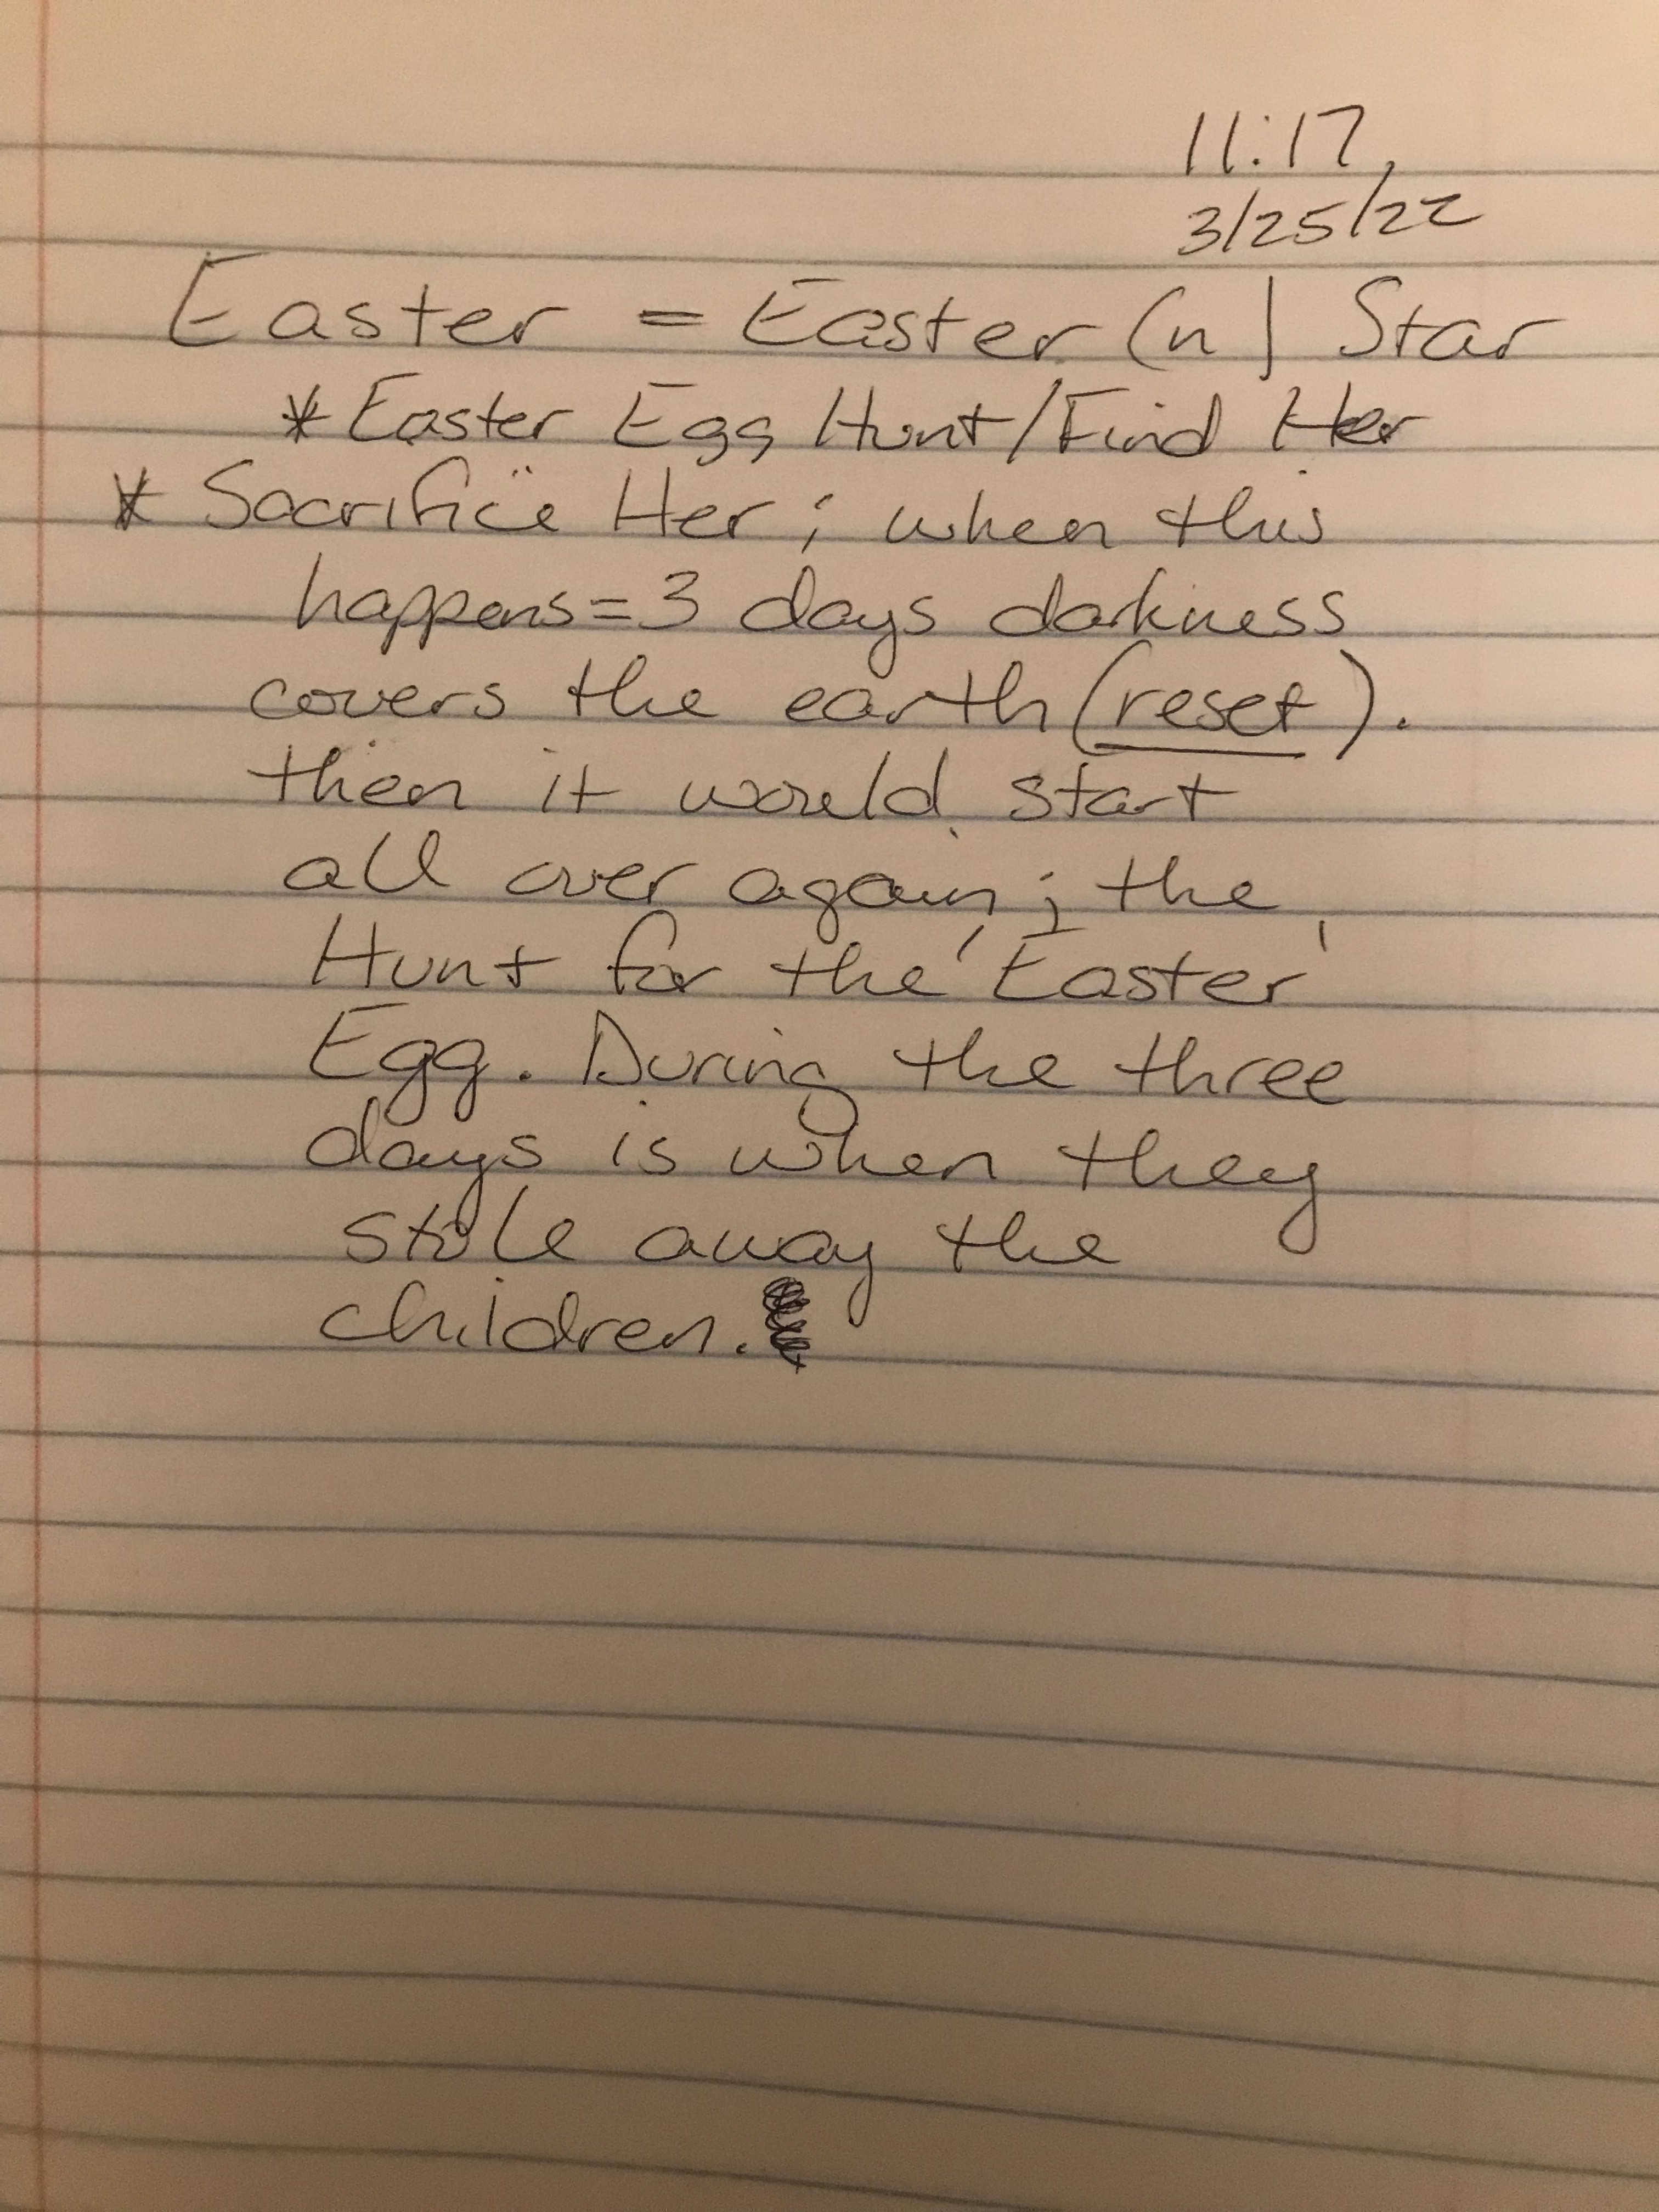 11:17
3/25/22
Easter = Easter (n) Star
* Easter Egg Hunt/Find Her
* Sacrifice Her; when this
happens=3 days darkness
covers the earth (reset).
then it would start
all over again; the
Hunt for the 'Easter'
Egg. During the three
days is when they
stole away the
children.